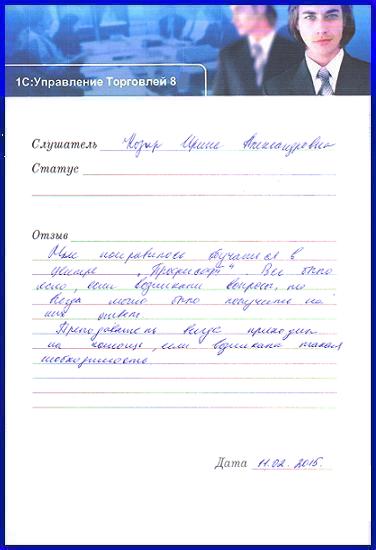 1С:Управление Торговлей 8
Слушатель Козыр Ирина Александровна
Статус
Отзыв
Мне понравилось обучаться в
центре "Профисофт". Все было
ясно, если возникали вопросы, то
всегда можно было получить на
них ответ.
Преподаватель всегда приходил
на помощь, если возникала такая
необходимость.
Дата 11.02.2015.